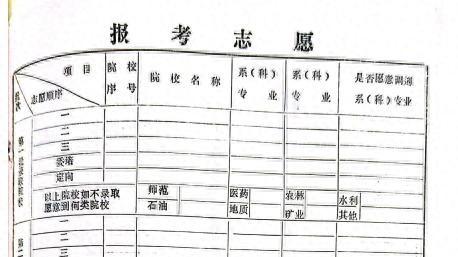 报考志愿
项目 院校 院校名称 系(科) 系(科) 是否愿意调
批次 志愿顺序 序号 专业 专业 系(科)专业
第一批录取院校
一
二
三
委培
定向
以上院校如不录取 师范 医药 农林 水利
愿意到何类院校 石油 地质 矿业 其他
第二
一
二